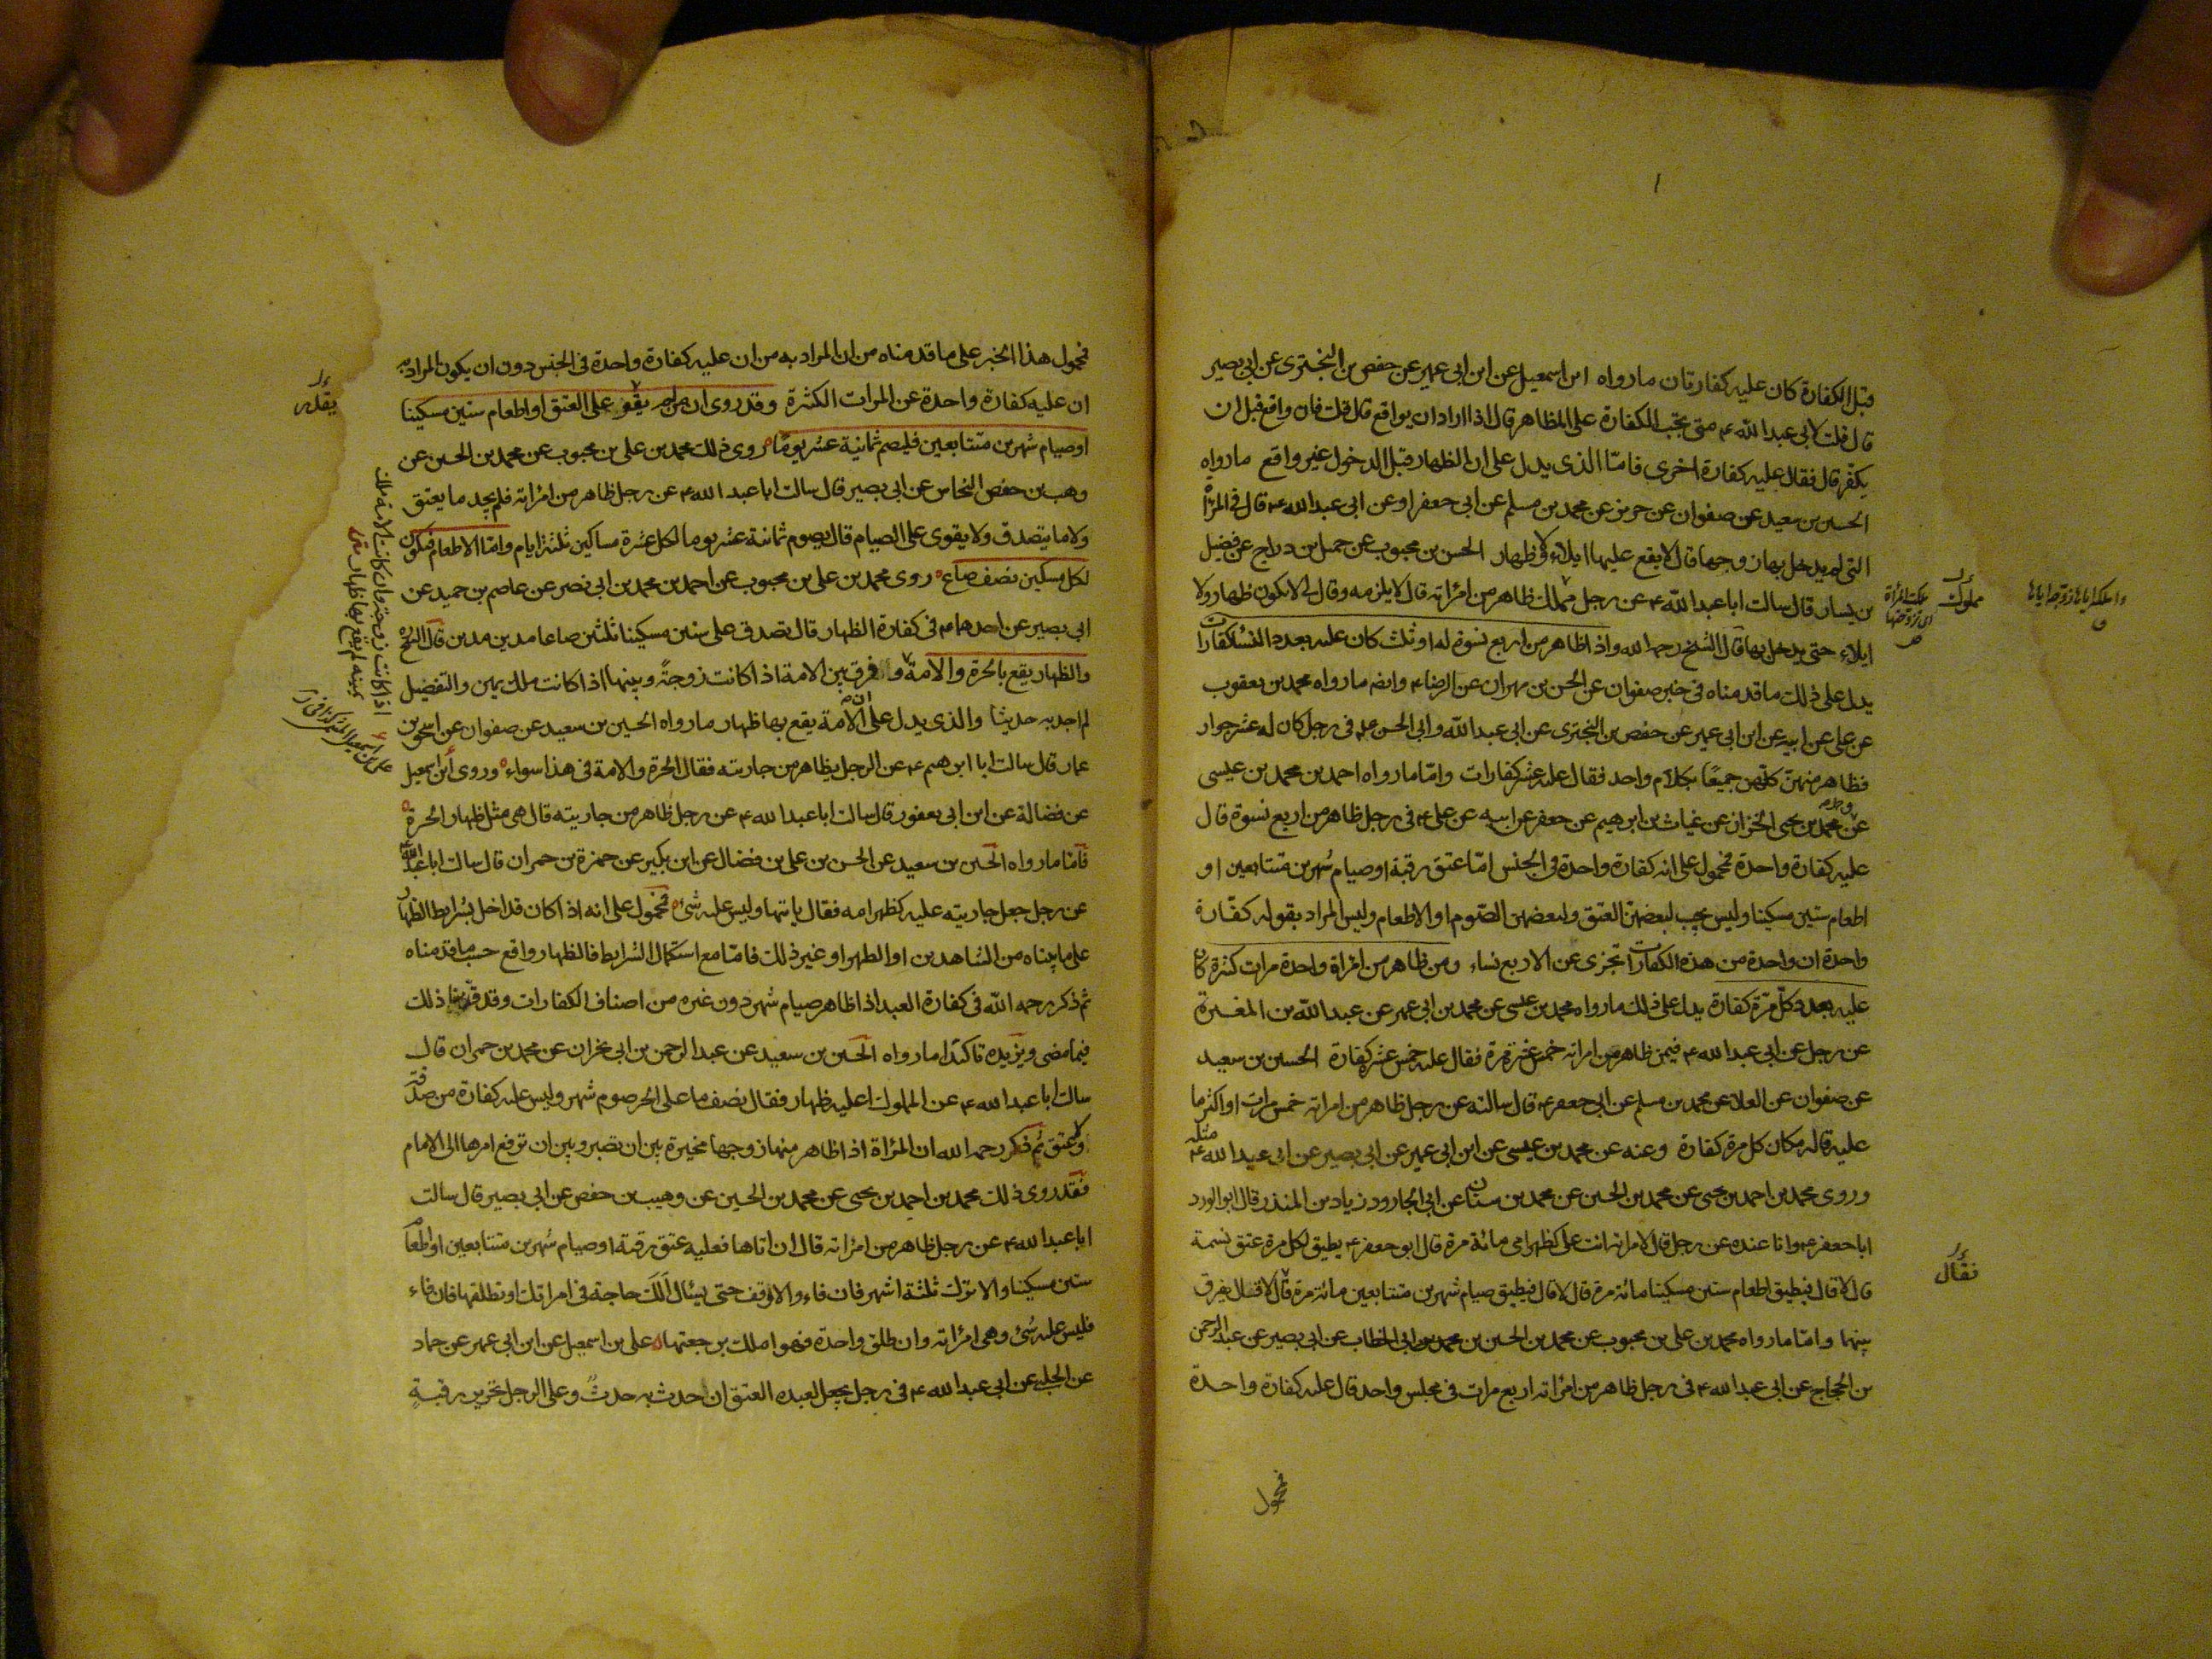 قبل الكفارة كان عليه كفارتان ما رواه ابن اسمعيل عن ابن ابى عمير عن حفص بن البخترى عن ابى بصير
قال قلت لابى عبد الله ع متى تجب الكفارة على المظاهر قال اذا اراد ان يواقع قال قلت فان واقع قبل ان
يكفر قال فقال عليه كفارة اخرى فامّا الذى يدل على ان الظهار قبل الدخول غير واقع ما رواه
الحسين بن سعيد عن صفوان عن حريز عن محمد بن مسلم عن ابى جعفر او عن ابى عبد الله ع قال فى المرأة
التى لم يدخل بها زوجها قال لا يقع عليها ايلاء ولا ظهار الحسن بن محبوب عن جميل بن دراج عن فضيل
بن يسار قال سالت ابا عبد الله ع عن رجل مملك ظاهر من امرأته قال لا يلزمه وقال لى لا يكون ظهار ولا
ايلاء حتى يدخل بها قال الشيخ رحمه الله واذا ظاهر من اربع نسوة له او ثلث كان عليه بعدد النساء كفارات
يدل على ذلك ما قدمناه فى خبر صفوان عن الحسن بن مهران عن الرضا ع وايضا ما رواه محمد بن يعقوب
عن على عن ابيه عن ابن ابى عمير عن حفص بن البخترى عن ابى عبد الله وابى الحسن ع فى رجل كان له عشر جوار
فظاهر منهن كلهن جميعًا بكلام واحد فقال عليه عشر كفارات وامّا ما رواه احمد بن محمد بن عيسى
عن محمد بن يحيى الخزاز عن غياث بن ابرهيم عن جعفر عن ابيه عن على ع فى رجل ظاهر من اربع نسوة قال
عليه كفارة واحدة فمحمول على انه كفارة واحدة فى الجنس امّا عتق رقبة او صيام شهرين متتابعين او
اطعام ستين مسكينا وليس يجب لبعضهن العتق ولبعضهن الصّوم او الاطعام وليس المراد بقوله كفّارة
واحدة ان واحدة من هذه الكفارات تجزى عن الاربع نساء ومن ظاهر من امرأة واحدة مرات كثيرة كان
عليه بعدد كلّ مرّة كفارة يدل على ذلك ما رواه محمد بن عيسى عن محمد بن ابى عمير عن عبد الله بن المغيرة
عن رجل عن ابى عبد الله ع فيمن ظاهر من امراته خمس عشرة مرة فقال عليه خمس عشر كفارة الحسين بن سعيد
عن صفوان عن العلا عن محمد بن مسلم عن ابى جعفر ع قال سالته عن رجل ظاهر من امراته خمس مرات او اكثر ما
عليه قال مكان كل مرة كفارة وعنه عن محمد بن عيسى عن ابن ابى عمير عن ابى بصير عن ابى عبد الله ع مثله
وروى محمد بن احمد بن يحيى عن محمد بن الحسين عن محمد بن سنان عن ابى الجارود زياد بن المنذر قال ابو الورد
ابا جعفر ع وانا عنده عن رجل قال لامراته انت على كظهر امى مائة مرة قال ابو جعفر ع يطيق لكل مرة عتق نسمة
قال لا قال فيطيق اطعام ستين مسكينا مائة مرة قال لا قال فيطيق صيام شهرين متتابعين مائة مرة قال لا قال يفرق
بينهما وامّا ما رواه محمد بن على بن محبوب عن محمد بن الحسين بن ابى الخطاب عن ابى بصير عن عبد الرحمن
بن الحجاج عن ابى عبد الله ع فى رجل ظاهر من امرأته اربع مرات فى مجلس واحد قال عليه كفارة واحدة
مملوك
فقال
فمحمول
فمحمول هذا الخبر على ما قدمناه من ان المراد به من ان عليه كفارة واحدة فى الجنس دون ان يكون المراد به
ان عليه كفارة واحدة عن المرات الكثيرة وقد روى ان من لم يقو على العتق او اطعام ستين مسكينا
او صيام شهرين متتابعين فليصم ثمانية عشر يومًا روى ذلك محمد بن على بن محبوب عن محمد بن الحسين عن
وهب بن حفص النخاس عن ابى بصير قال سالت ابا عبد الله ع عن رجل ظاهر من امرأته فلم يجد ما يعتق
ولا ما يتصدق ولا يقوى على الصيام قال يصوم ثمانية عشر يوما لكل عشرة مساكين ثلثة ايام وامّا الاطعام فيكون
لكل مسكين نصف صاع روى محمد بن على بن محبوب عن احمد بن محمد بن ابى نصر عن عاصم بن حميد عن
ابى بصير عن احدهما ع فى كفارة الظهار قال تصدق على ستين مسكينا ثلثين صاعا مدين مدين قال الشيخ
والظهار يقع بالحرة والامة والفرق بين الامة اذا كانت زوجةً وبينها اذا كانت ملك يمين والتفضيل
لم اجد به حديثا والذى يدل على ان الامة يقع بها ظهار ما رواه الحسين بن سعيد عن صفوان عن اسحق بن
عمار قال سالت ابا ابرهيم ع عن الرجل يظاهر من جاريته فقال الحرة والامة فى هذا سواء وروى ابن اسمعيل
عن فضالة عن ابن ابى يعفور قال سالت ابا عبد الله ع عن رجل ظاهر من جاريته قال هى مثل ظهار الحرة
فامّا ما رواه الحسين بن سعيد عن الحسن بن على بن فضال عن ابن بكير عن حمزة بن حمران قال سالت ابا عبد الله
عن رجل جعل جاريته عليه كظهر امه فقال ياتيها وليس عليه شىء فمحمول على انه اذا كان قد اخل بشرايط الظهار
على ما بيناه من الشاهدين او الطهر او غير ذلك فامّا مع استكمال الشرايط فالظهار واقع حسب ما قدمناه
ثم ذكر رحمه الله فى كفارة العبد اذا ظاهر صيام شهر دون غيره من اصناف الكفارات وقد قدّمنا ذلك
فيما مضى ويزيده تاكيدا ما رواه الحسين بن سعيد عن عبد الرحمن بن ابى نجران عن محمد بن حمران قال
سالت ابا عبد الله ع عن المملوك اعليه ظهار فقال نصف ما على الحر صوم شهر وليس عليه كفارة من صدقة
ولا عتق ثم ذكر رحمه الله ان المرأة اذا ظاهر منها زوجها مخيرة بين ان تصبر وبين ان ترفع امرها الى الامام
فقد روى ذلك محمد بن احمد بن يحيى عن محمد بن الحسين عن وهيب بن حفص عن ابى بصير قال سالت
ابا عبد الله ع عن رجل ظاهر من امرأته قال ان اتاها فعليه عتق رقبة او صيام شهرين متتابعين او اطعام
ستين مسكينا والا ترك ثلثة اشهر فان فاء والا اوقف حتى يسئال الك حاجة فى امراتك او تطلقها فان فاء
فليس عليه شىء وهى امرأته وان طلق واحدة فهو املك برجعتها على بن اسمعيل عن ابن ابى عمير عن حماد
عن الحلبى عن ابى عبد الله ع فى رجل يجعل لعبده العتق ان حدث به حدثٌ وعلى الرجل تحرير رقبةٍ
يقدر